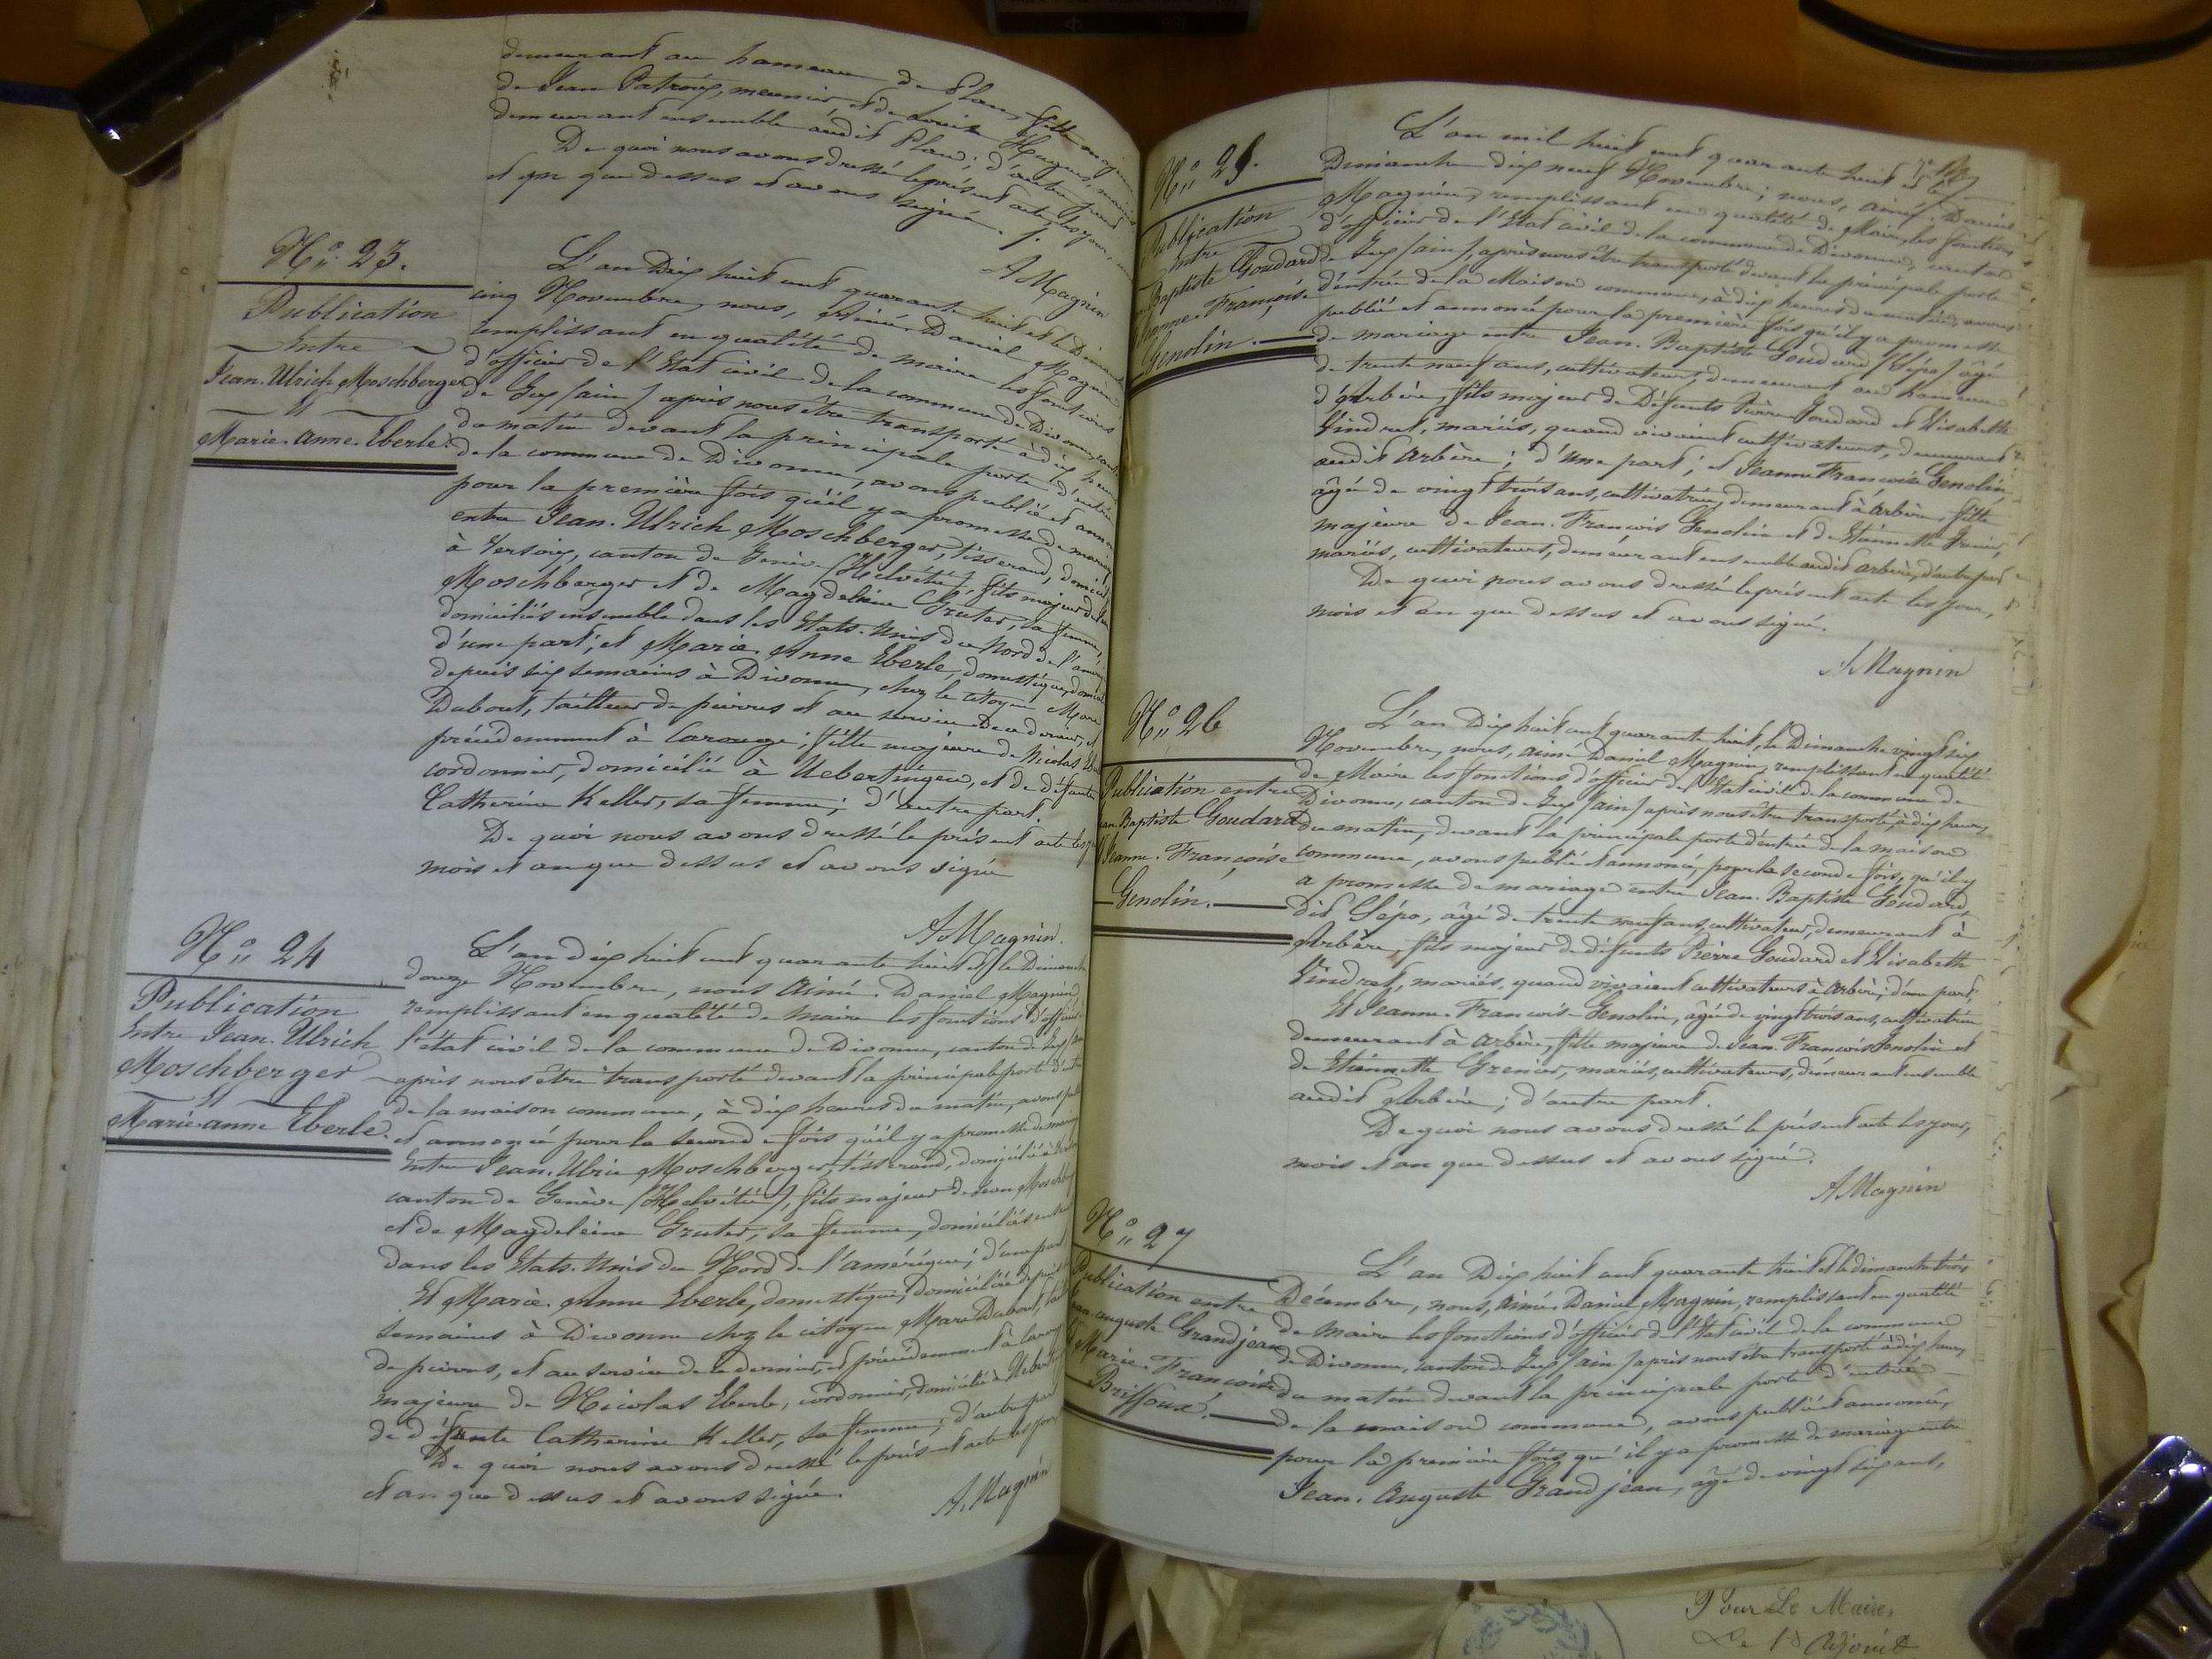 demeurant au hameau de Plan, fille majeure
de Jean Patroux, meunier et de Louise Hugues, mariés
demeurant ensemble audit Plan; d'autre part
De quoi nous avons dressé le présent acte les jour,
et an que dessus et avons signé.
A Magnin
N° 23.
Publication
Entre
Jean-Ulrich Moschberger
Et
Marie-Anne-Eberle.
L'an Dix huit cent quarante huit et le Dimanche
cinq Novembre, nous, Aimé-Daniel Magnin,
remplissant en qualité de maire les fonctions
d'officier de l'Etat civil de la commune de Divonne, canton
de Gex (ain) après nous être transporté à dix heures
du matin devant la principale porte d'entrée
de la commune de Divonne, avons publié et annoncé
pour la première fois qu'il y a promesse de mariage
entre Jean-Ulrich Moschberger, tisserand, domicilié
à Versoix, canton de Genève (Helvétie) fils majeur de Jean
Moschberger et de Magdeleine Gruter, sa femme,
domiciliés ensemble dans les Etats-Unis du Nord de l'amérique
d'une part; et Marie Anne Eberle, domestique, domiciliée
depuis six semaines à Divonne, chez le citoyen Marc
Dubout, tailleur de pierres et au service de ce dernier, et
précédemment à larouge; fille majeure de Nicolas Eberle
cordonnier, domicilié à Uebertingen, et de défunte
Catherine Keller, sa femme; d'autre part.
De quoi nous avons dressé le présent acte les jour
mois et an que dessus et avons signé
A Magnin.
N° 24
Publication
Entre Jean-Ulrich
Moschberger
Et
Marie-anne Eberle.
L'an dix huit cent quarante huit et le Dimanche
douze Novembre, nous Aimé-Daniel Magnin
remplissant en qualité de maire les fonctions d'officier
l'état civil de la commune de Divonne, canton de Gex (ain
après nous être transporté devant la principale porte d'entrée
de la maison commune, à dix heures du matin, avons publié
et annoncé pour la seconde fois qu'il y a promesse de mariage
Entre Jean-Ulric Moschberger, tisserand, domicilié à Versoix
canton de Genève (Helvétie), fils majeur de Jean Moschberger
et de Magdeleine Gruter, sa femme, domiciliés ensemble
dans les Etats-Unis du Nord de l'amérique; d'une part
Et Marie-Anne Eberle, domestique, domiciliée depuis
semaines à Divonne chez le citoyen Marc Dubout, tailleur
de pierres, et au service de ce dernier, et précédemment à larouge
majeure de Nicolas Eberle, cordonnier, domicilié à Uebertingen
de défunte Catherine Keller, sa femme; d'autre part
De quoi nous avons dressé le présent acte les jour
et an que dessus et avons signé.
A. Magnin
N° 25.
Publication
Entre
Baptiste Goudard
Jeanne-Françoise
Genolin.
L'an mil huit cent quarante huit et le
Dimanche dix neuf Novembre; nous, aimé Daniel
Magnin, remplissant en qualité de Maire, les fonctions
d'officier de l'Etat civil de la commune de Divonne, canton
de Gex (ain), après nous être transporté devant la principale porte
d'entrée de la Maison commune, à dix heures du matin, avons
publié et annoncé pour la première fois qu'il y a promesse
de mariage entre Jean-Baptiste Goudard (Sépo) âgé
de trente neuf ans, cultivateur, demeurant au hameau
d'Arbère, fils majeur de Défunts Pierre Goudard et Elisabeth
Vindret, mariés, quand vivaient cultivateurs, demeurant
audit Arbère; d'une part; et Jeanne Françoise Genolin,
âgée de vingt trois ans, cultivatrice, demeurant à Arbère, fille
majeure de Jean-François Genolin et de Etiennette Grenier,
mariés, cultivateurs, demeurant ensemble audit Arbère, d'autre part
De quoi nous avons dressé le présent acte les jour,
mois et an que dessus et avons signé.
A Magnin
N° 26
Publication entre
Jean-Baptiste Goudard
Et Jeanne-Françoise
Genolin.
L'an Dix huit cent quarante huit, le Dimanche vingt six
Novembre, nous, aimé Daniel Magnin, remplissant en qualité
de Maire les fonctions d'officier de l'Etat civil de la commune de
Divonne, canton de Gex (ain) après nous être transporté, à dix heures
du matin, devant la principale porte d'entrée de la maison
commune, avons publié et annoncé, pour la seconde fois, qu'il y
a promesse de mariage entre Jean-Baptiste Goudard
dit Sépo, âgé de trente neuf ans, cultivateur, demeurant à
Arbère, fils majeur de défunts Pierre Goudard et Elisabeth
Vindret, mariés, quand vivaient cultivateurs à Arbère; d'une part,
Et Jeanne-François-Genolin, âgée de vingt trois ans, cultivatrice
demeurant à Arbère, fille majeure de Jean-François Genolin et
de Etiennette Grenier, mariés, cultivateurs, demeurant ensemble
audit Arbère; d'autre part.
De quoi nous avons dressé le présent acte les jour,
mois et an que dessus et avons signé.
A Magnin
N° 27
Publication entre
Jean auguste Grandjean
Et Marie-Françoise
Briffoux.
L'an Dix huit cent quarante huit et le dimanche trois
Décembre, nous, Aimé-Daniel Magnin, remplissant en qualité
de Maire les fonctions d'officier de l'Etat civil de la commune
de Divonne, canton de Gex (ain) après nous être transporté à dix heures
du matin devant la principale porte d'entrée
de la maison commune, avons publié et annoncé,
pour la première fois qu'il y a promesse de mariage entre
Jean-Auguste Grandjean, âgé de vingt six ans,
Pour Le Maire,
Le 1er Adjoint